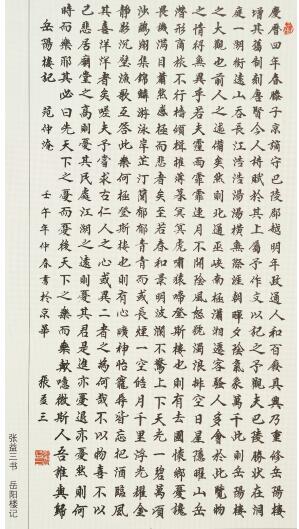 慶曆四年春滕子京謫守巴陵郡越明年政通人和百廢具興乃重修岳陽樓
增其舊制刻唐賢今人詩賦於其上屬予作文以記之予觀夫巴陵勝狀在洞
庭一湖銜遠山吞長江浩浩湯湯橫無際涯朝暉夕陰氣象萬千此則岳陽樓
之大觀也前人之述備矣然則北通巫峽南極瀟湘遷客騷人多會於此覽物
之情得無異乎若夫霪雨霏霏連月不開陰風怒號濁浪排空日星隱曜山岳
潛形商旅不行檣傾楫摧薄暮冥冥虎嘯猿啼登斯樓也則有去國懷鄉憂讒
畏譏滿目蕭然感極而悲者矣至若春和景明波瀾不驚上下天光一碧萬頃
沙鷗翔集錦鱗游泳岸芷汀蘭郁郁青青而或長煙一空皓月千里浮光耀金
靜影沉璧漁歌互答此樂何極登斯樓也則有心曠神怡寵辱皆忘把酒臨風
其喜洋洋者矣嗟夫予嘗求古仁人之心或異二者之為何哉不以物喜不以
己悲居廟堂之高則憂其民處江湖之遠則憂其君是進亦憂退亦憂然則何
時而樂耶其必曰先天下之憂而憂後天下之樂而樂歟噫微斯人吾誰與歸
岳陽樓記 范仲淹 壬午年仲春書於京華 張益三
张益三书 岳阳楼记